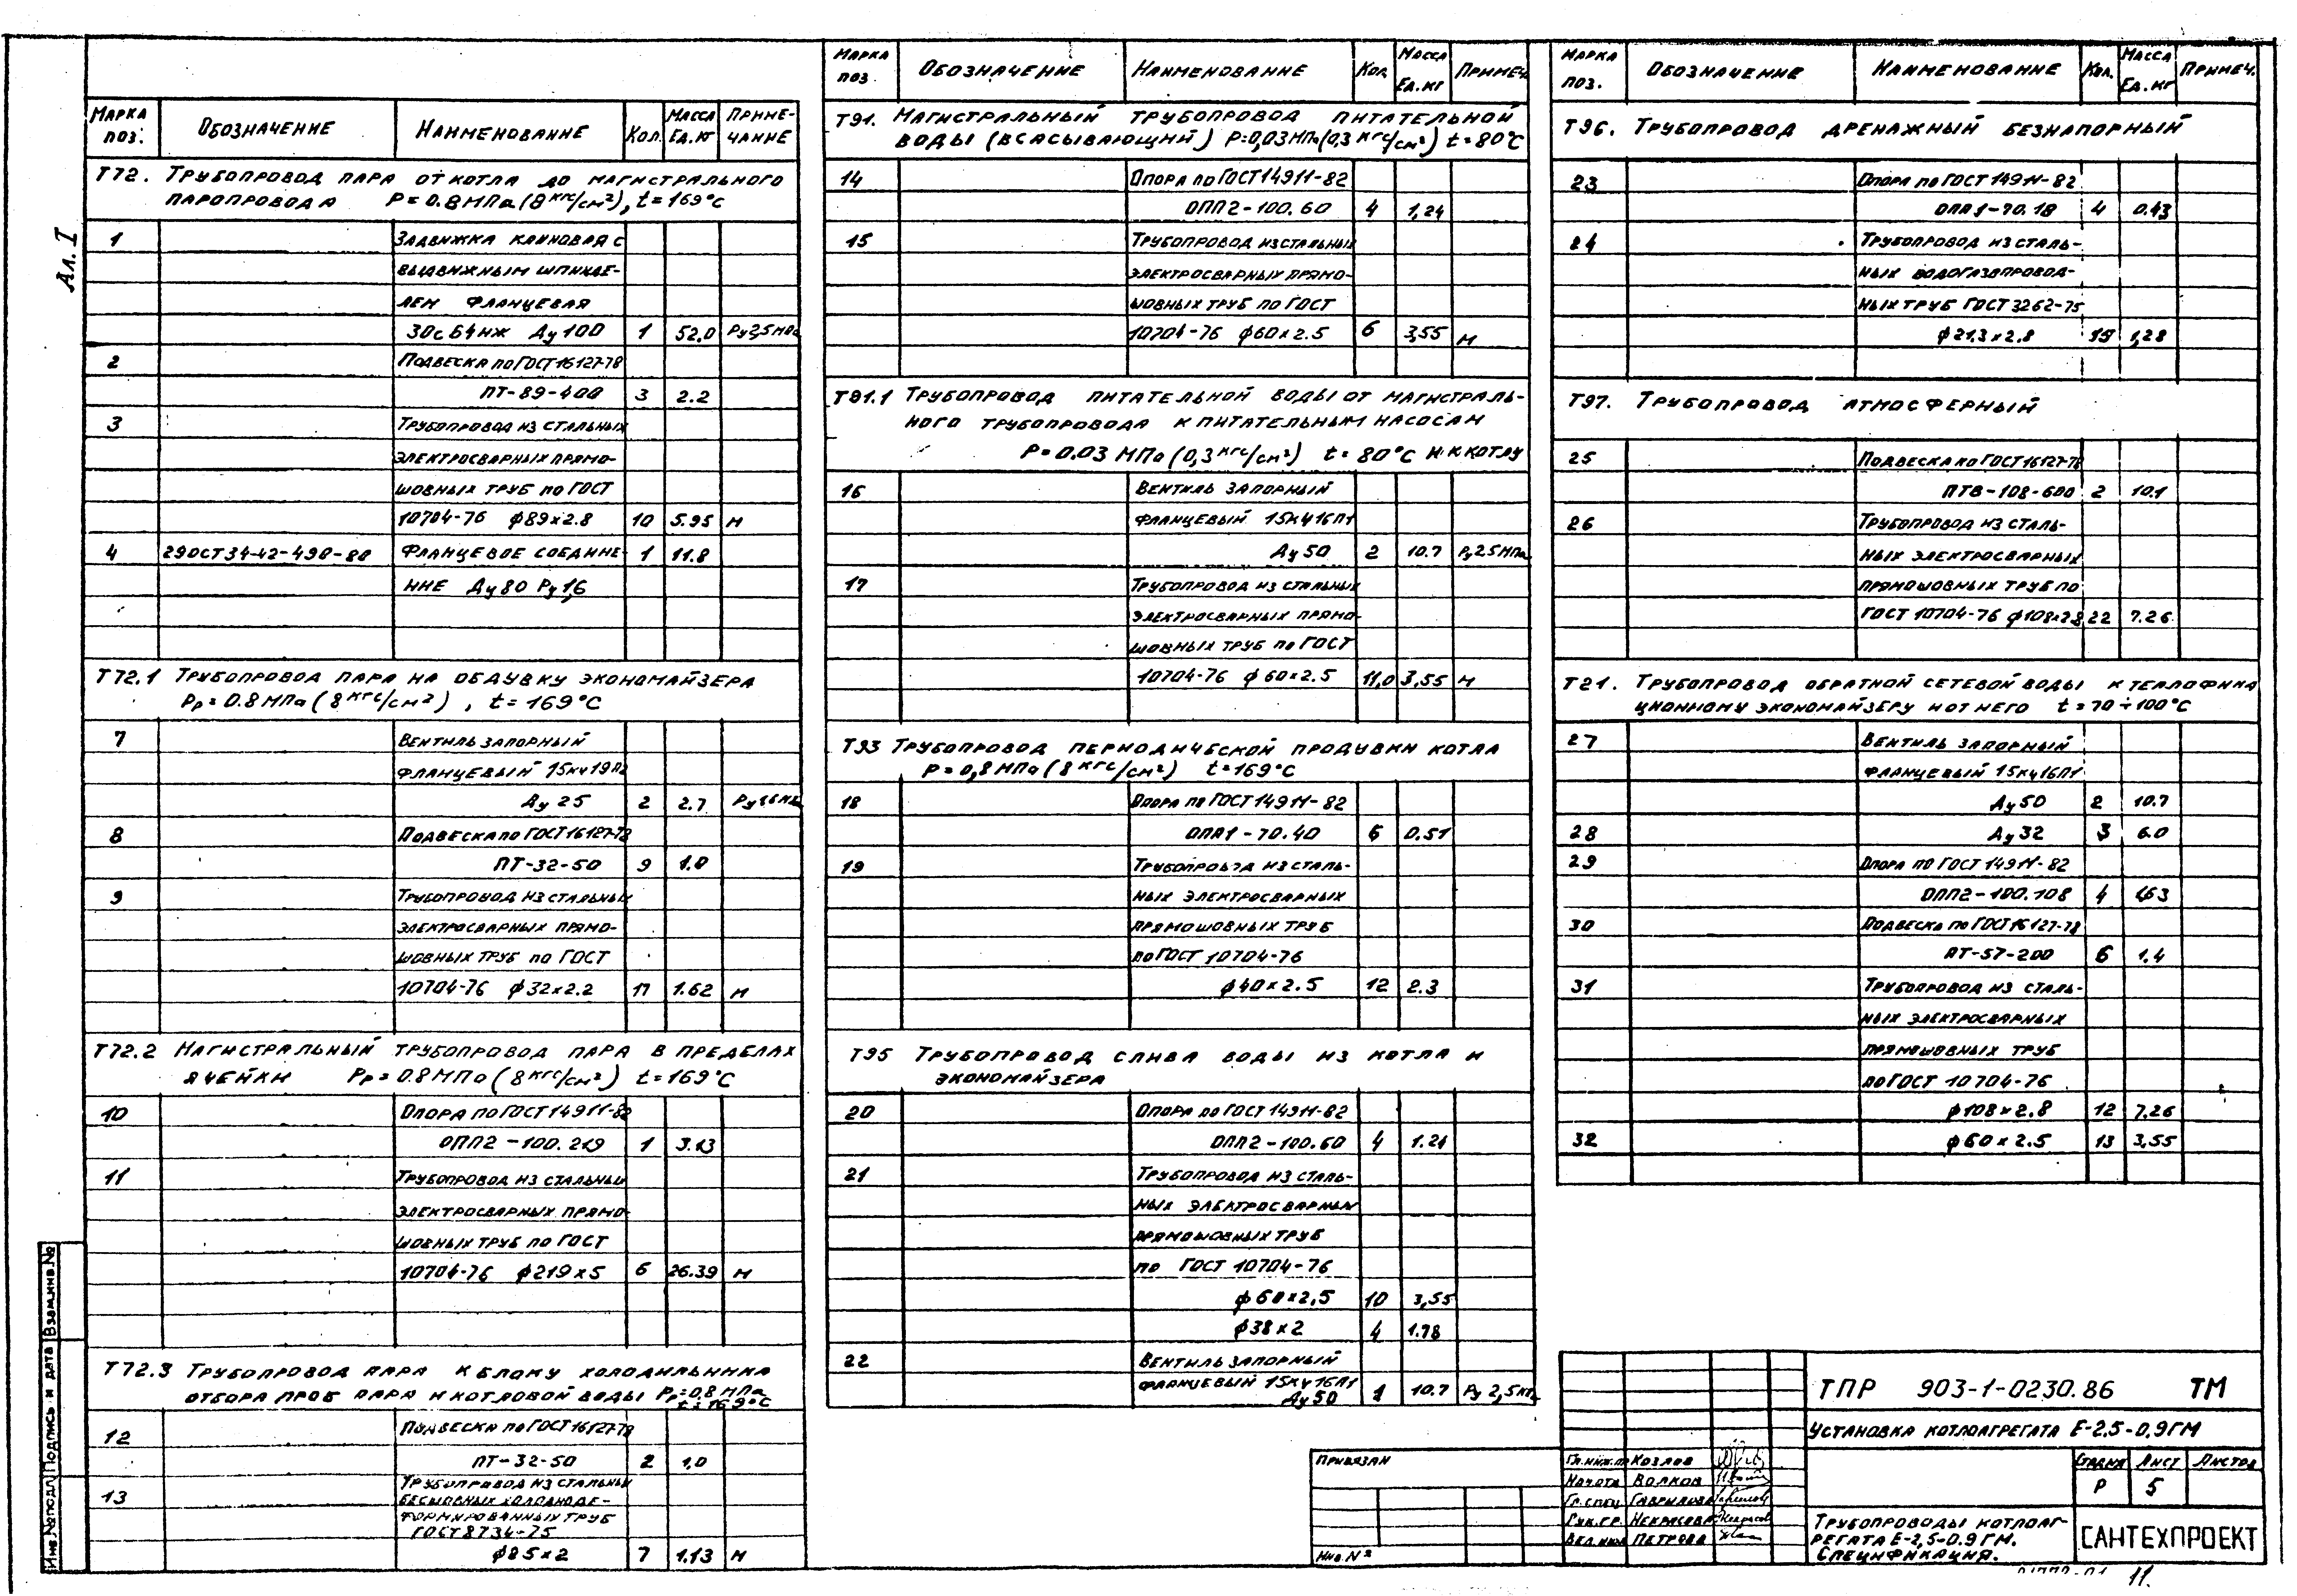 Ал. I
Марка поз. Обозначение Наименование Кол. Масса Ед. кг Приме-чание
Т72. Трубопровод пара от котла до магистрального
паропровода Р=0.8МПа (8кгс/см²), t=169°С
1 Задвижка клиновая с
выдвижным шпинде-
лем фланцевая
30с64нж Ду100 1 52.0 Ру2,5МПа
2 Подвеска по ГОСТ16127-78
ПТ-89-400 3 2.2
3 Трубопровод из стальных
электросварных прямо-
шовных труб по ГОСТ
10704-76 ф89×2.8 10 5.95 м
4 29ОСТ34-42-490-80 Фланцевое соедине- 1 11.8
ние Ду80 Ру1,6
Т72.1 Трубопровод пара на обдувку экономайзера
Рр=0.8МПа (8кгс/см²), t=169°С
7 Вентиль запорный
фланцевый 15кч19п2
Ду 25 2 2.7 Ру1,6МПа
8 Подвеска по ГОСТ16127-78
ПТ-32-50 9 1.0
9 Трубопровод из стальных
электросварных прямо-
шовных труб по ГОСТ
10704-76 ф32×2.2 17 1.62 м
Т72.2 Магистральный трубопровод пара в пределах
ячейки Рр=0.8МПа (8кгс/см²) t=169°С
10 Опора по ГОСТ14911-82
ОПП2-100.219 1 3.13
11 Трубопровод из стальных
электросварных прямо-
шовных труб по ГОСТ
10704-76 ф219×5 6 26.39 м
Т72.3 Трубопровод пара к блоку холодильника
отбора проб пара и котловой воды Рр=0,8МПа
t=169°С
12 Подвеска по ГОСТ16127-78
ПТ-32-50 2 1,0
13 Трубопровод из стальных
бесшовных холоднодe-
формированных труб
ГОСТ8734-75
ф25×2 7 1.13 м
Марка поз. Обозначение Наименование Кол. Масса Ед.кг Примеч.
Т91. Магистральный трубопровод питательной
воды (всасывающий) Р=0,03МПа(0,3кгс/см²) t=80°С
14 Опора по ГОСТ14911-82
ОПП2-100.60 4 1,24
15 Трубопровод из стальных
электросварных прямо-
шовных труб по ГОСТ
10704-76 ф60×2.5 6 3,55 м
Т91.1 Трубопровод питательной воды от магистраль-
ного трубопровода к питательным насосам
Р=0.03 МПа (0,3кгс/см²) t=80°С и к котлу
16 Вентиль запорный
фланцевый 15кч16п1
Ду50 2 10.7 Ру2.5МПа
17 Трубопровод из стальных
электросварных прямо-
шовных труб по ГОСТ
10704-76 ф60×2.5 11,0 3,55 м
Т93 Трубопровод периодической продувки котла
Р=0,8МПа (8кгс/см²) t=169°С
18 Опора по ГОСТ14911-82
ОПП1-70.40 6 0.51
19 Трубопровод из сталь-
ных электросварных
прямошовных труб
по ГОСТ 10704-76
ф40×2.5 12 2.3
Т95 Трубопровод слива воды из котла и
экономайзера
20 Опора по ГОСТ14911-82
ОПП2-100.60 4 1.24
21 Трубопровод из сталь-
ных электросварных
прямошовных труб
по ГОСТ 10704-76
ф60×2,5 10 3,55
ф38×2 4 1.78
22 Вентиль запорный
фланцевый 15кч16п1
Ду50 1 10.7 Ру 2,5МПа
Марка поз. Обозначение Наименование Кол. Масса Ед.кг Примеч.
Т96. Трубопровод дренажный безнапорный
23 Опора по ГОСТ14911-82
ОПП1-70.18 4 0.43
24 Трубопровод из сталь-
ных водогазопровод-
ных труб ГОСТ3262-75
ф21.3×2.8 15 1,28
Т97. Трубопровод атмосферный
25 Подвеска по ГОСТ16127-78
ПТВ-108-600 2 10.1
26 Трубопровод из сталь-
ных электросварных
прямошовных труб по
ГОСТ 10704-76 ф108×2.8 22 7.26
Т21. Трубопровод обратной сетевой воды к теплофика
ционному экономайзеру и от него t=70÷100°С
27 Вентиль запорный
фланцевый 15кч16п1
Ду50 2 10.7
28 Ду32 3 6.0
29 Опора по ГОСТ14911-82
ОПП2-100.108 4 1,63
30 Подвеска по ГОСТ16127-78
ПТ-57-200 6 1.4
31 Трубопровод из сталь-
ных электросварных
прямошовных труб
по ГОСТ 10704-76
ф108×2.8 12 7.26
32 ф60×2.5 13 3,55
Инв.№ подл. Подпись и дата Взам.инв.№
Привязан
Инв.№
Гл.инж.п Козлов
Нач.отд Волков
Гл.спец Гаврилова
Рук.гр. Некрасова
Вед.инж Петрова
ТПР 903-1-0230.86 ТМ
Установка котлоагрегата Е-2,5-0,9ГМ
Стадия Лист Листов
Р 5
Трубопроводы котлоаг-
регата Е-2,5-0.9ГМ.
Спецификация.
САНТЕХПРОЕКТ
11.